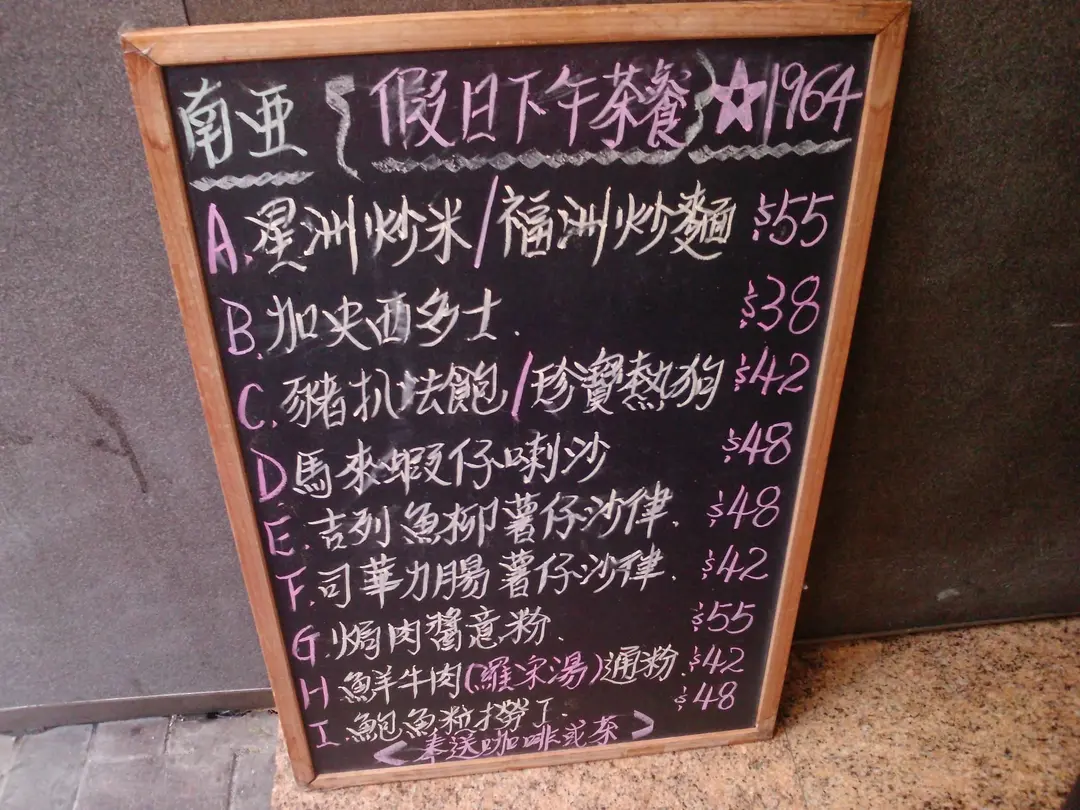 南亚 { 假日下午茶餐 } ★1964
A. 星洲炒米/福洲炒麵 $55
B. 加央西多士. $38
C. 豬扒法飽/珍寶熱狗 $42
D 馬來蝦仔喇沙 $48
E. 吉列魚柳薯仔沙律. $48
F. 司華力腸薯仔沙律. $42
G. 焗肉醬意粉. $55
H 鮮牛肉(羅宋湯)通粉. $42
I. 鮑魚粒撈丁. $48
<奉送咖啡或茶>